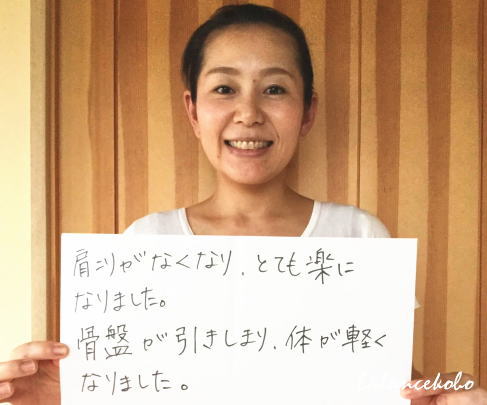 肩こりがなくなり、とても楽に
なりました。
骨盤が引きしまり、体が軽く
なりました。
balancekobo